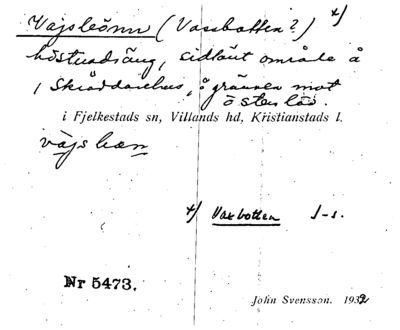 (Vassbotten?) x)
höstvadsäng, sidlänt område å
Skräddarehus, å gränsen mot
Österlöv.
i Fjelkestads sn, Villands hd, Kristianstads l.
x) Vaxbotten J-s.
Nr 5473.
John Svensson. 1932